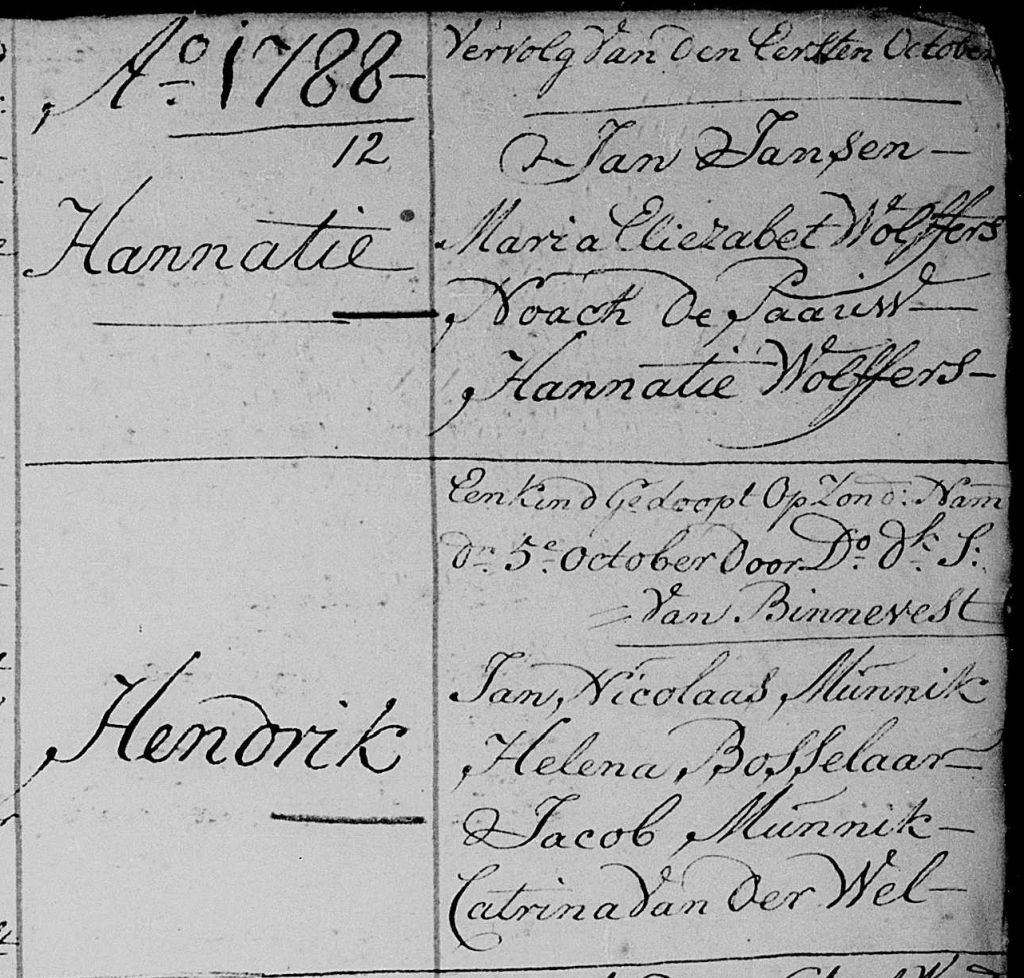 Aº 1788
12
Hannatie
Vervolg Van den Eersten October
Jan Jansen
Maria Eliezabet Wolffers
Noach de Paauw
Hannatie Wolffers
Een kind Gedoopt Op Zond: Nam
dn 5e October door Do dk S:
Van Binnevest
Hendrik
Jan Nicolaas Munnik
Helena Bosselaar
Jacob Munnik
Catrina Van der Wel